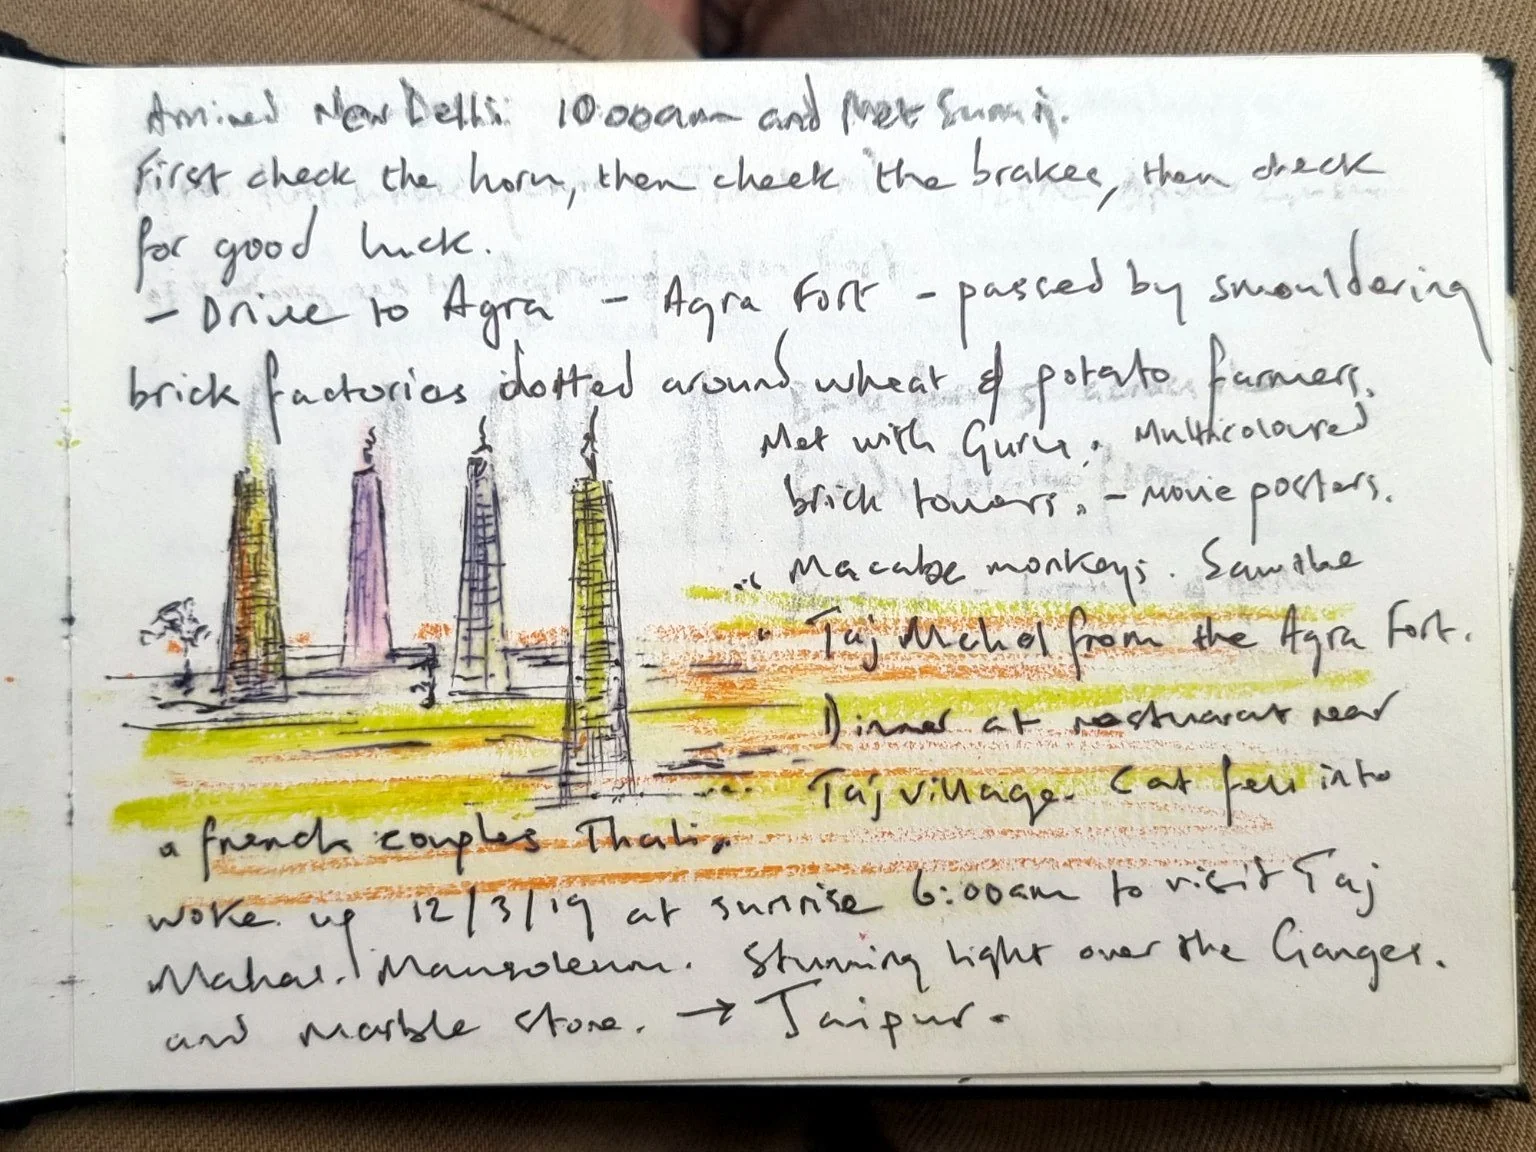 Arrived New Delhi 10:00am and Met
First check the horn, then check the brakes, then check
for good luck.
- Drive to Agra - Agra Fort - passed by smouldering
brick factories dotted around wheat & potato farmers.
Met with Guru. Multicoloured
brick towers. - movie posters.
Macabe monkeys. Saw the
Taj Mahal from the Agra Fort.
Dinner at near
Taj village. Cat fell into
a french couples Thali.
woke up 12/3/19 at sunrise 6:00am to visit Taj
Mahal. Mausoleum. Stunning light over the Ganges.
and marble stone. → Jaipur.